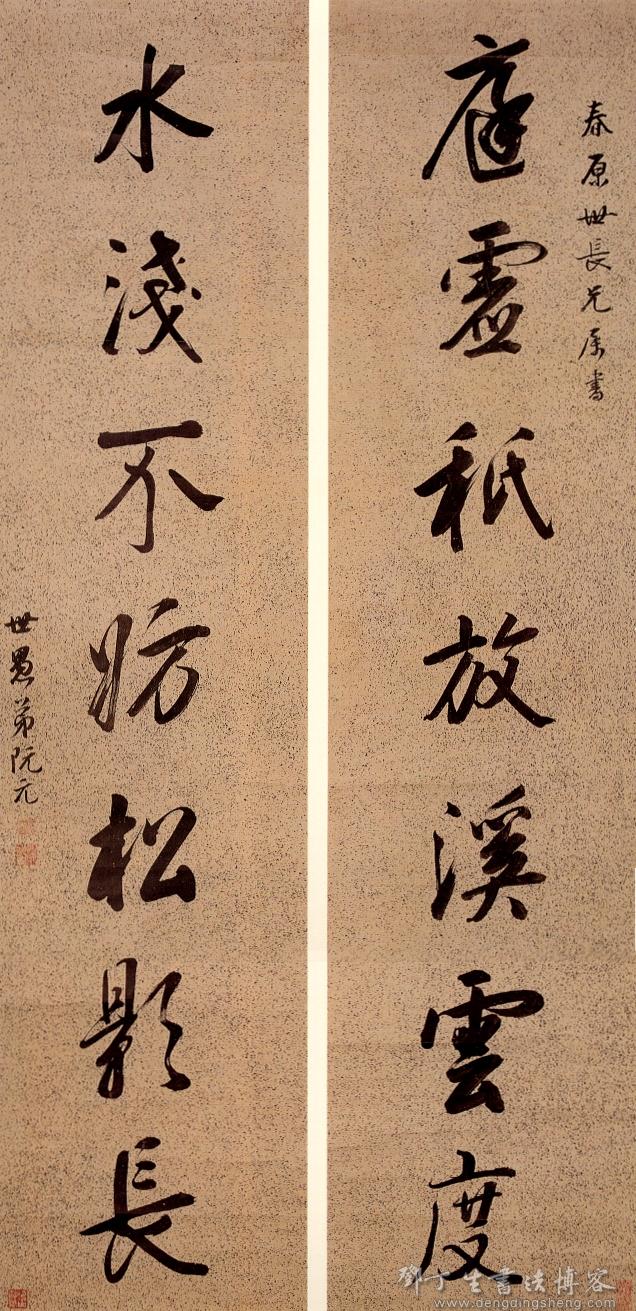 春原世長兄屬書
庭虛秖放溪雲度
水淺不妨松影長
世愚弟阮元
鄧丁生書法博客
www.dengdingsheng.com